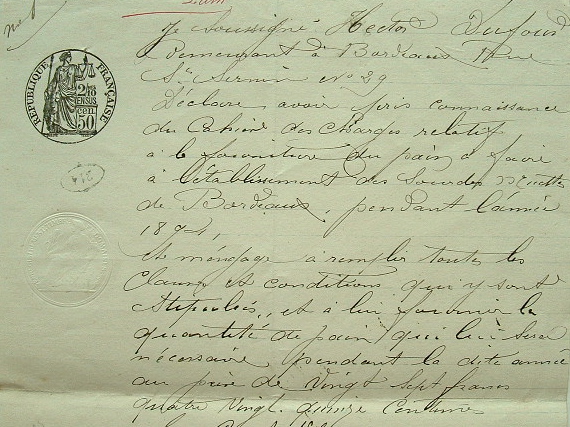 Je soussigné Hector Dufour
demeurant à Bordeaux Rue
Ste Sernin No 29
Déclare avoir pris connaissance
du Cahier des charges relatif
à la fourniture du pain à faire
à l'établissement des Sourdes Muettes
de Bordeaux, pendant l'année
Et m'engage à remplir toutes les
clauses et conditions qui y sont
stipulées, et à lui fournir la
quantité de pain qui lui sera
nécessaire pendant la dite année
au prix de Vingt sept francs
quatre vingt quinze centimes
RÉPUBLIQUE FRANÇAISE
50
214